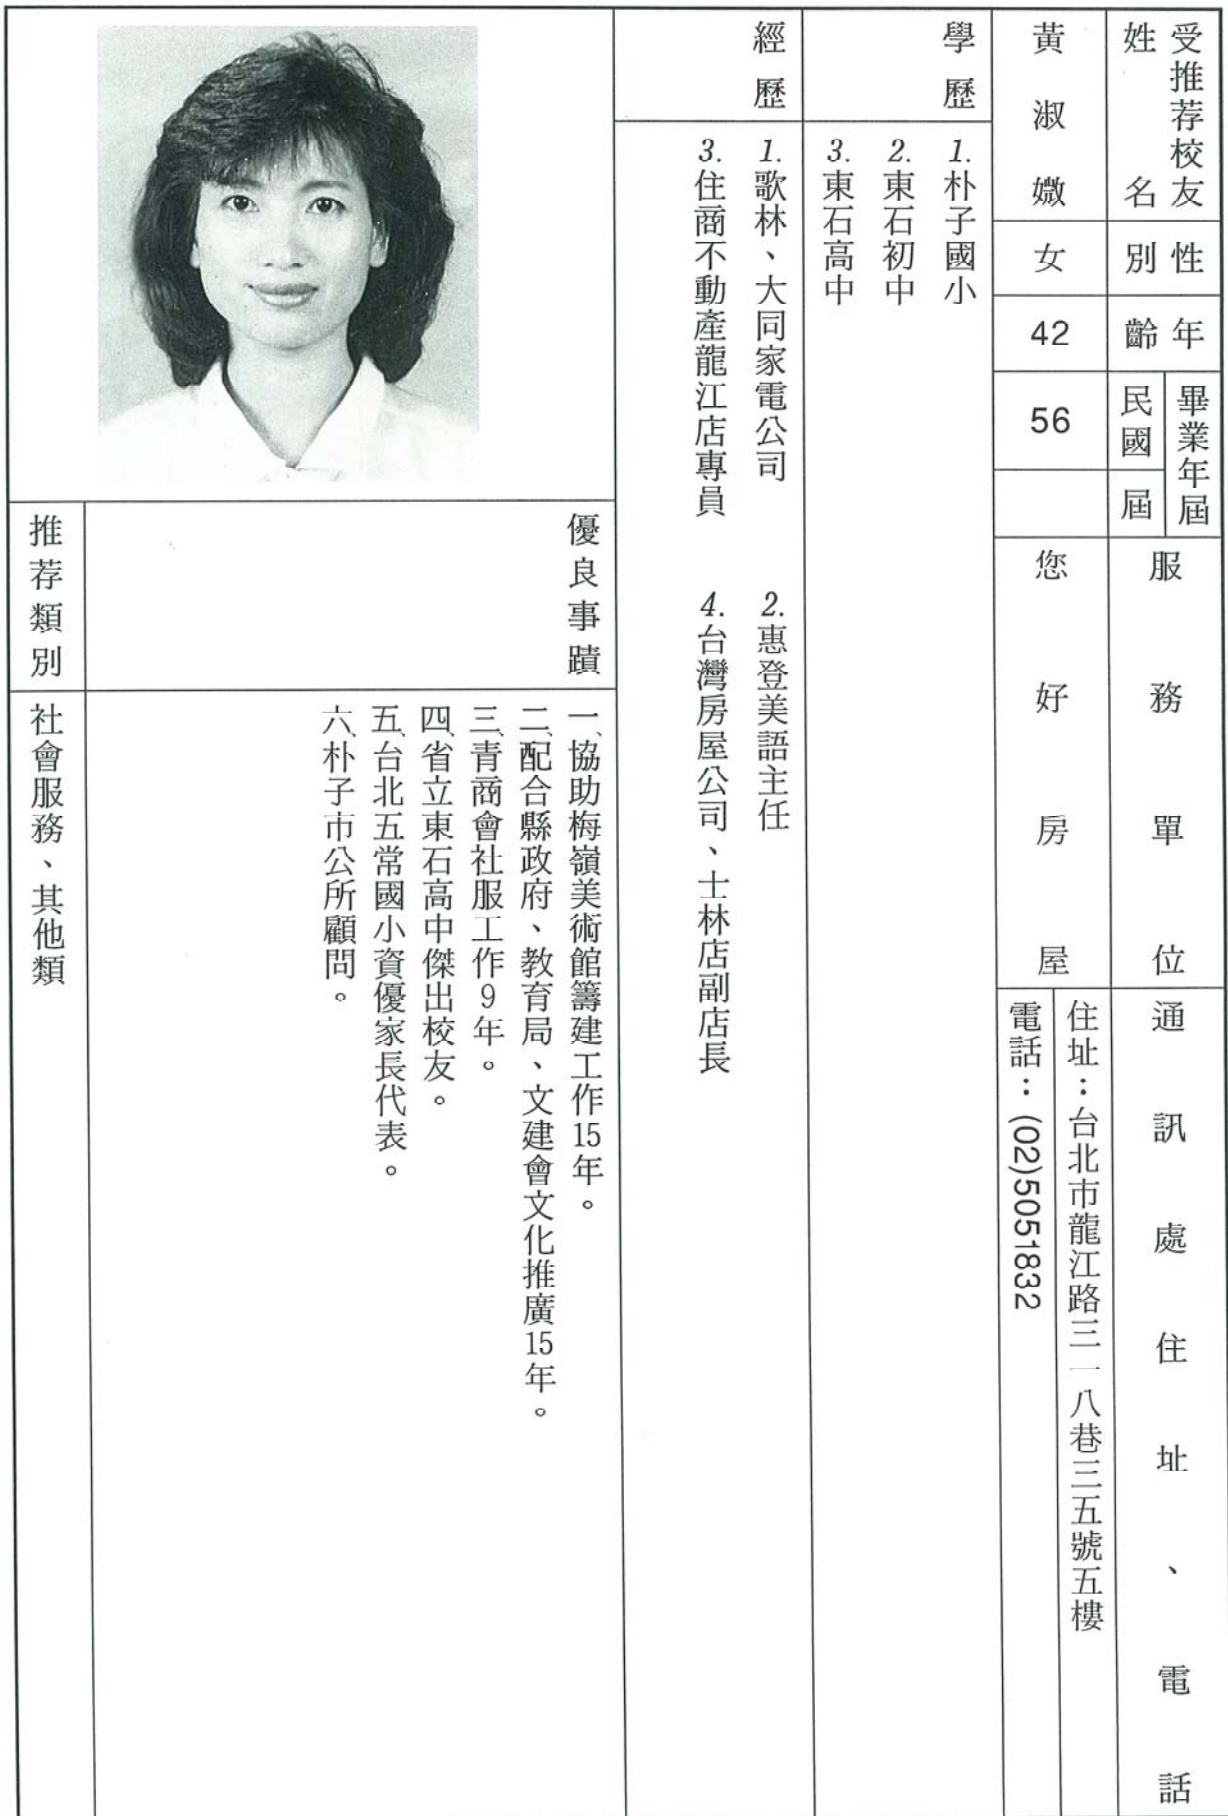 受推荐校友
姓名
黃淑媺
性別
女
年齡
42
畢業年屆
民國
56
屆
服務單位
您好房屋
通訊處住址、電話
住址：台北市龍江路三一八巷三五號五樓
電話：(02)5051832
學歷
1.朴子國小
2.東石初中
3.東石高中
經歷
1.歌林、大同家電公司
2.惠登美語主任
3.住商不動產龍江店專員
4.台灣房屋公司、士林店副店長
優良事蹟
一、協助梅嶺美術館籌建工作15年。
二、配合縣政府、教育局、文建會文化推廣15年。
三、青商會社服工作9年。
四、省立東石高中傑出校友。
五、台北五常國小資優家長代表。
六、朴子市公所顧問。
推荐類別
社會服務、其他類